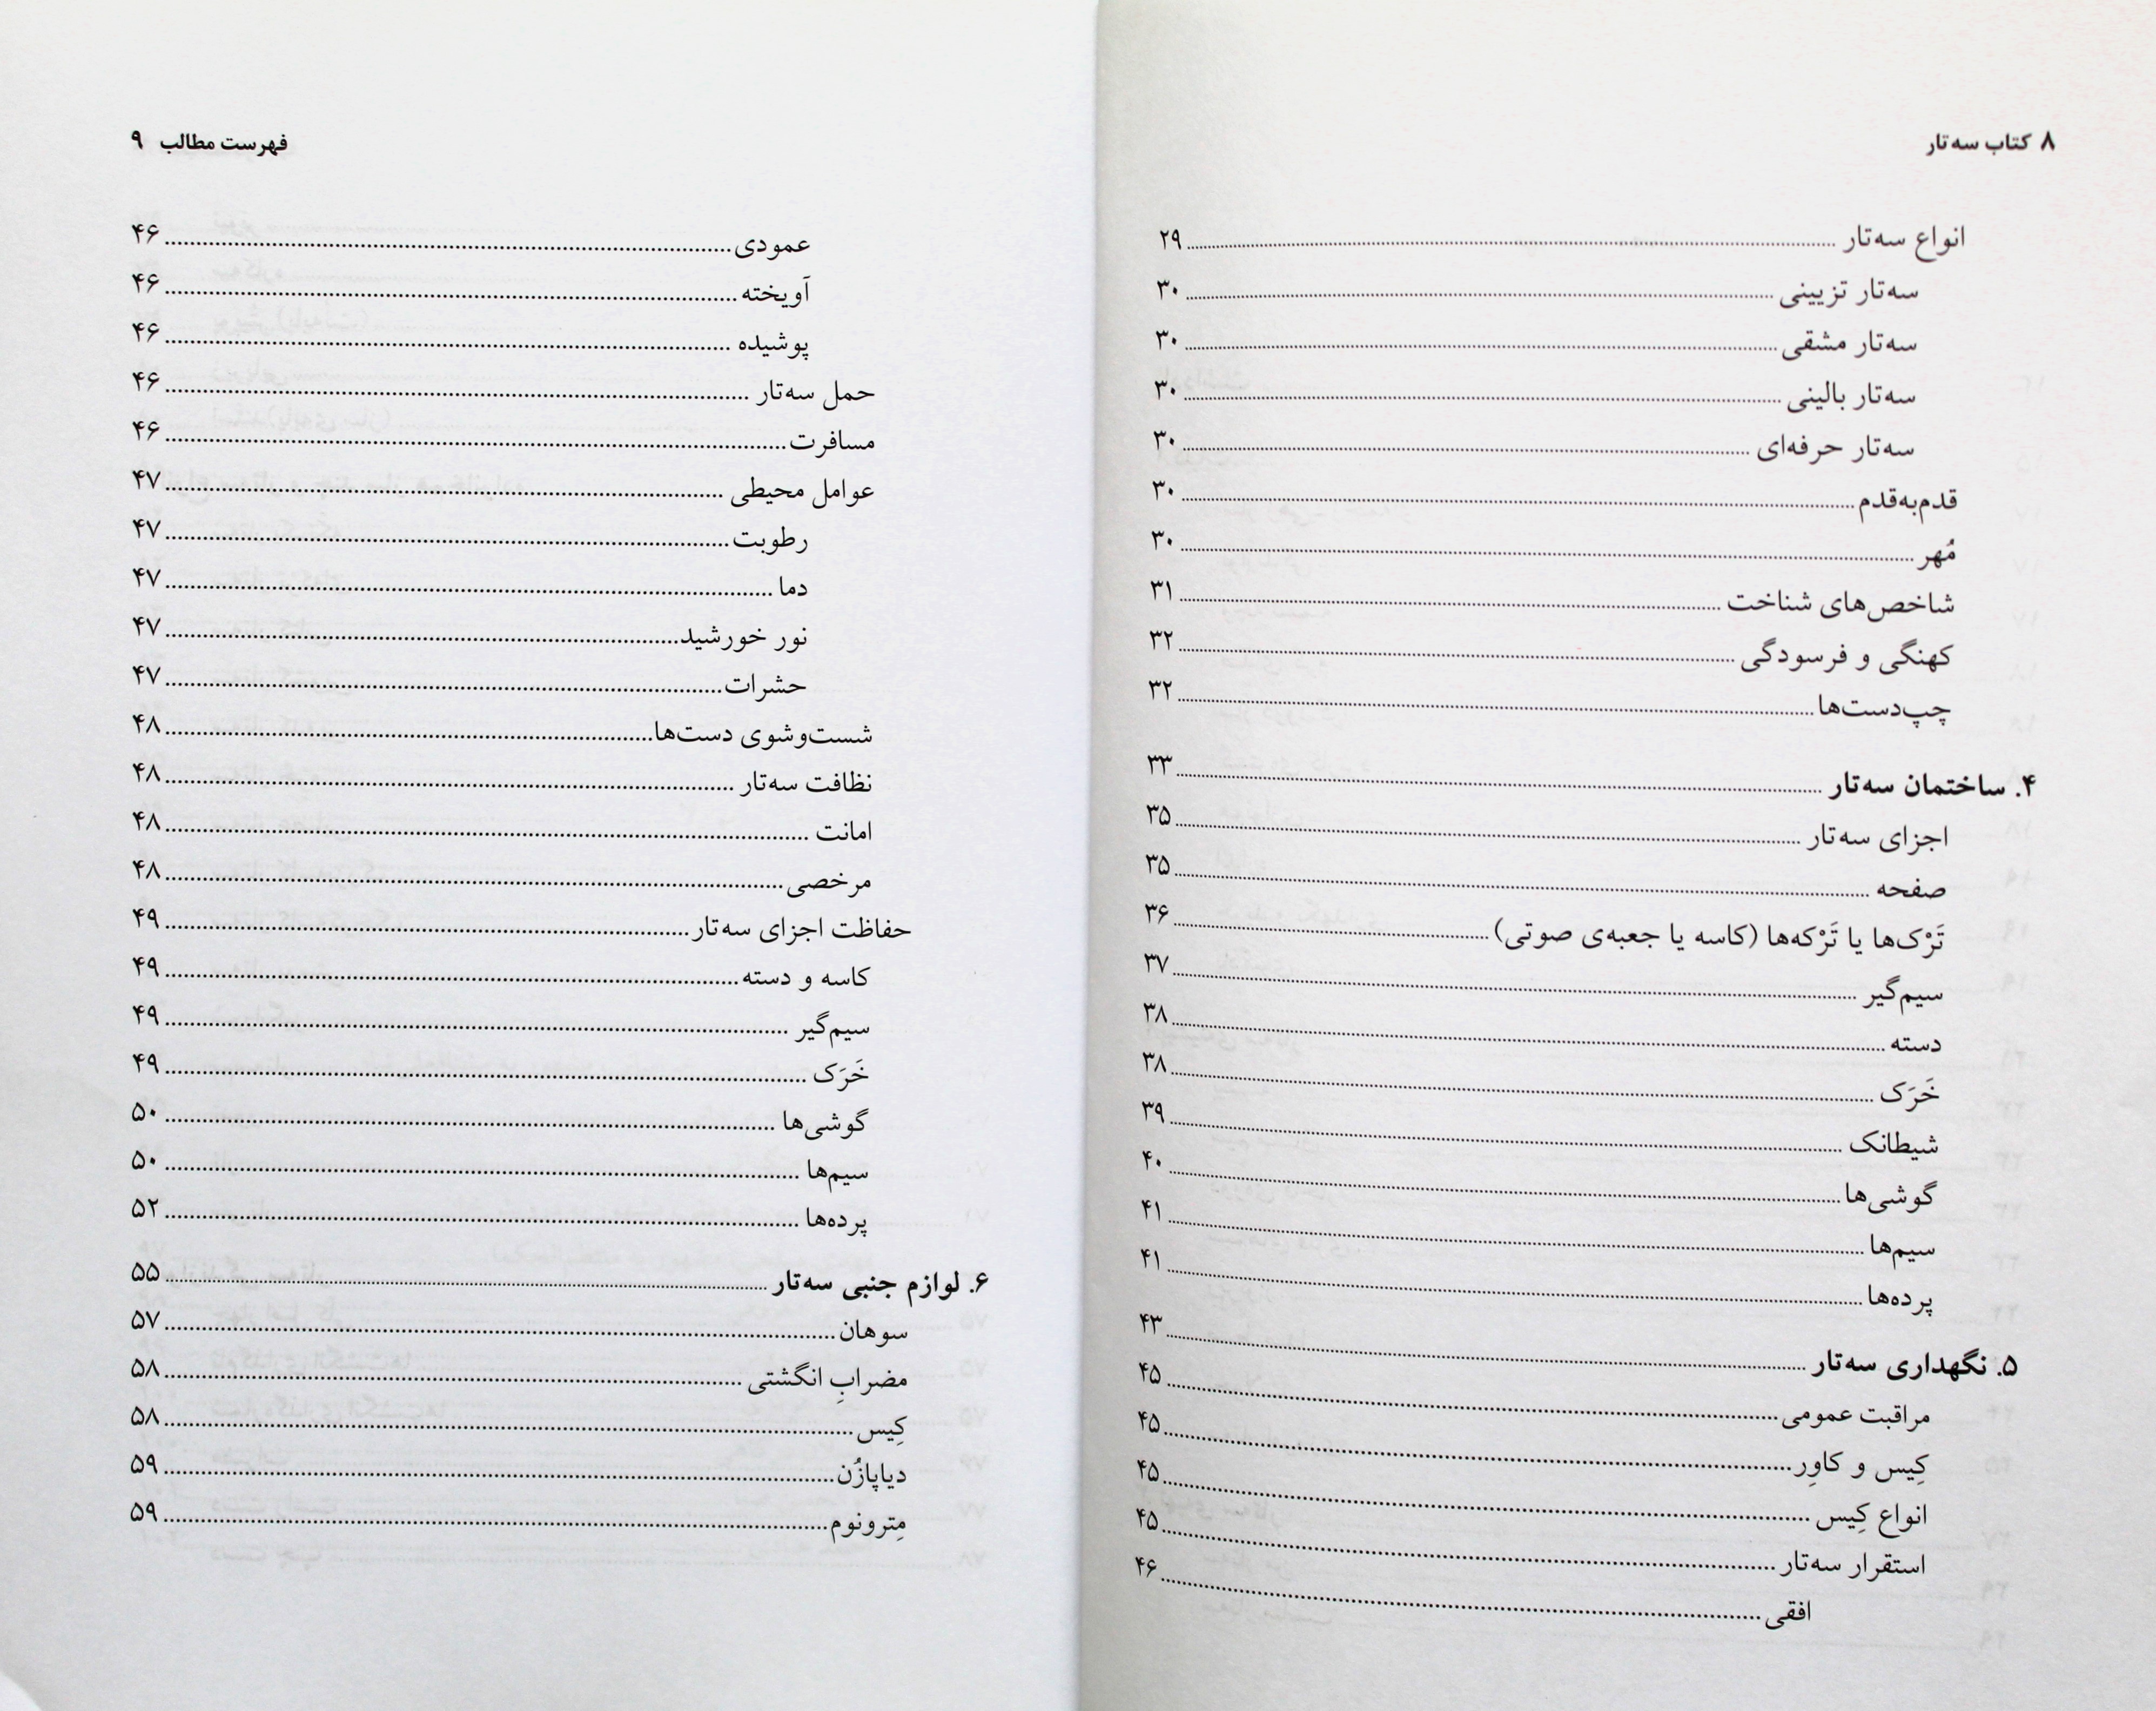 ۸ کتاب سه‌تار
انواع سه‌تار ........ ۲۹
سه‌تار تزیینی ........ ۳۰
سه‌تار مشقی ........ ۳۰
سه‌تار بالینی ........ ۳۰
سه‌تار حرفه‌ای ........ ۳۰
قدم‌به‌قدم ........ ۳۰
مُهر ........ ۳۰
شاخص‌های شناخت ........ ۳۱
کهنگی و فرسودگی ........ ۳۲
چپ‌دست‌ها ........ ۳۲
۴. ساختمان سه‌تار ........ ۳۳
اجزای سه‌تار ........ ۳۵
صفحه ........ ۳۵
تَرْک‌ها یا تَرْکه‌ها (کاسه یا جعبه‌ی صوتی) ........ ۳۶
سیم‌گیر ........ ۳۷
دسته ........ ۳۸
خَرَک ........ ۳۸
شیطانک ........ ۳۹
گوشی‌ها ........ ۴۰
سیم‌ها ........ ۴۱
پرده‌ها ........ ۴۱
۵. نگهداری سه‌تار ........ ۴۳
مراقبت عمومی ........ ۴۵
کِیس و کاوِر ........ ۴۵
انواع کِیس ........ ۴۵
استقرار سه‌تار ........ ۴۵
افقی ........ ۴۶
فهرست مطالب ۹
عمودی ........ ۴۶
آویخته ........ ۴۶
پوشیده ........ ۴۶
حمل سه‌تار ........ ۴۶
مسافرت ........ ۴۶
عوامل محیطی ........ ۴۷
رطوبت ........ ۴۷
دما ........ ۴۷
نور خورشید ........ ۴۷
حشرات ........ ۴۷
شست‌وشوی دست‌ها ........ ۴۸
نظافت سه‌تار ........ ۴۸
امانت ........ ۴۸
مرخصی ........ ۴۸
حفاظت اجزای سه‌تار ........ ۴۹
کاسه و دسته ........ ۴۹
سیم‌گیر ........ ۴۹
خَرَک ........ ۴۹
گوشی‌ها ........ ۵۰
سیم‌ها ........ ۵۰
پرده‌ها ........ ۵۲
۶. لوازم جنبی سه‌تار ........ ۵۵
سوهان ........ ۵۷
مضرابِ انگشتی ........ ۵۸
کِیس ........ ۵۸
دیاپازُن ........ ۵۹
مِترونوم ........ ۵۹